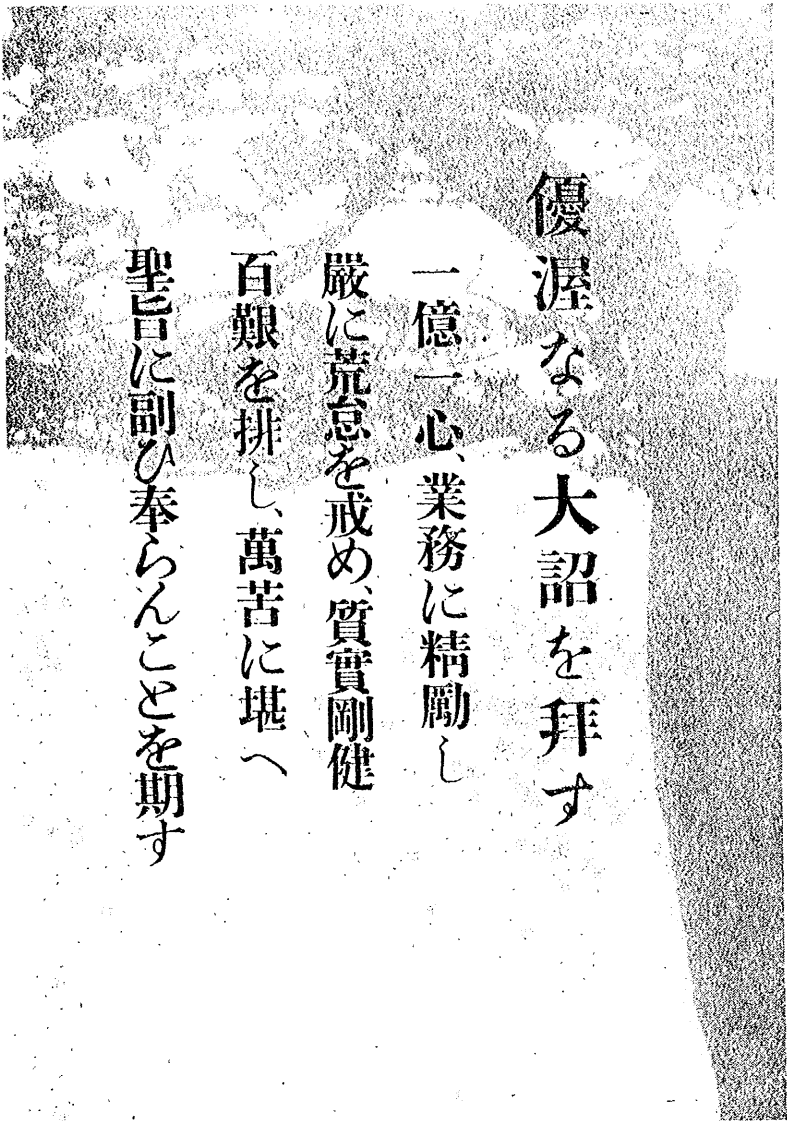 優渥なる大詔を拜す
一億一心、業務に精勵し
嚴に荒怠を戒め、質實剛健
百艱を排し、萬苦に堪へ
聖旨に副ひ奉らんことを期す